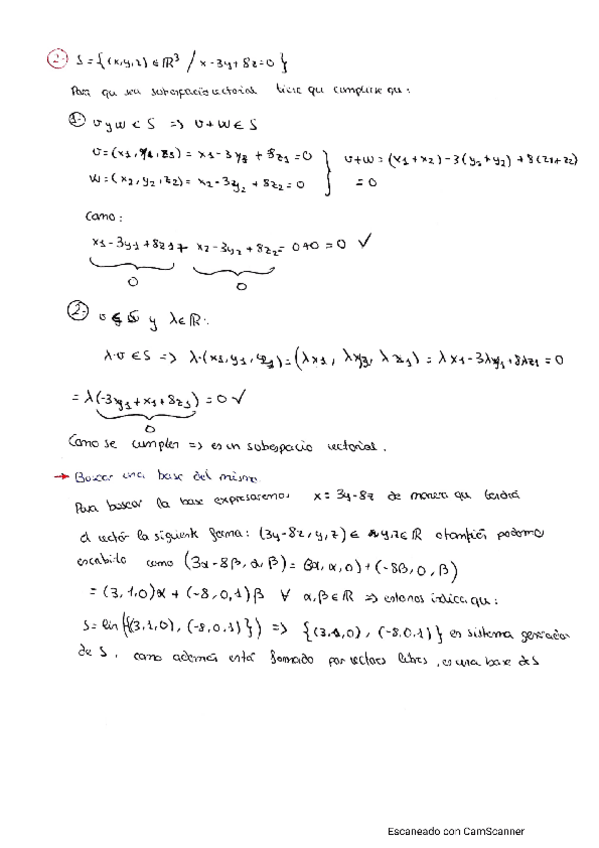 2.- S = {(x,y,z) ∈ ℝ³ / x-3y+8z=0}
Para que sea subespacio vectorial tiene que cumplirse que:
1- v y w ∈ S => v+w ∈ S
v=(x1, y1, z1) = x1-3y1+8z1=0 } v+w = (x1+x2)-3(y1+y2)+8(z1+z2)
w=(x2, y2, z2) = x2-3y2+8z2=0 } =0
Como:
x1-3y1+8z1 + x2-3y2+8z2 = 0+0=0 ✓
0 0
2- v ∈ S y λ∈ℝ:
λ·v ∈ S => λ·(x1,y1,z1)=(λx1, λy1, λz1) = λx1-3λy1+8λz1=0
= λ(-3y1+x1+8z1)=0 ✓
0
Como se cumplen => es un subespacio vectorial.
→ Buscar una base del mismo.
Para buscar la base expresaremos x=3y-8z de manera que tendrá
el vector la siguiente forma: (3y-8z, y, z) ∈ y,z∈ℝ o también podemos
escribirlo como (3α-8β, α, β) = (3α, α, 0)+(-8β, 0, β)
= (3,1,0)α + (-8,0,1)β ∀ α,β∈ℝ => esto nos indica que:
S = lin({(3,1,0), (-8,0,1)}) => {(3,1,0), (-8,0,1)} es sistema generador
de S, como además está formado por vectores libres, es una base de S
Escaneado con CamScanner